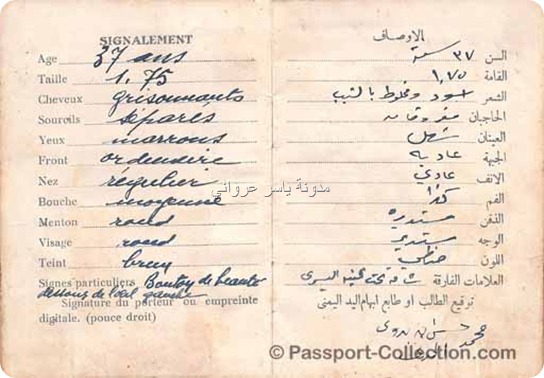 SIGNALEMENT
Age 37 ans
Taille 1.75
Cheveux grisonnants
Sourcils séparés
Yeux marrons
Front ordinaire
Nez régulier
Bouche moyenne
Menton rond
Visage rond
Teint brun
Signes particuliers Bouton de beauté
dessous de l'œil gauche
Signature du porteur ou empreinte
digitale. (pouce droit)
الاوصاف
السن ٣٧ سنة
القامة ١،٧٥
الشعر اسود ومخلوط بالشيب
الحاجبان مفروقان
العينان شهل
الجبهة عادية
الانف عادي
الفم كذا
الذقن مستديرة
الوجه مستدير
اللون حنطي
العلامات الفارقة شامة تحت عينه اليسرى
توقيع الطالب او طابع ابهام اليد اليمنى
محمد
مدونة ياسر مرواني
© Passport-Collection.com